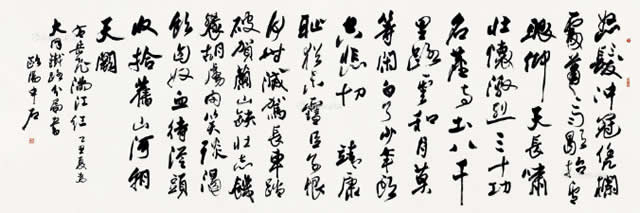 怒髮冲冠憑欄
處蕭蕭雨歇抬望
眼仰天長嘯
壯懷激烈三十功
名塵與土八千
里路雲和月莫
等閑白了少年頭
空悲切 靖康
耻猶未雪臣子恨
何時滅駕長車踏
破賀蘭山缺壯志饑
餐胡虜肉笑談渴
飲匈奴血待從頭
收拾舊山河朝
天闕
右岳飛滿江红 丁丑夏為
大同鐵路分局書
歐陽中石